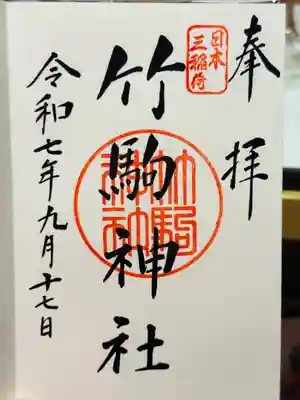 奉拝
日本
三稲荷
竹駒神社
竹駒神社
令和七年九月十七日